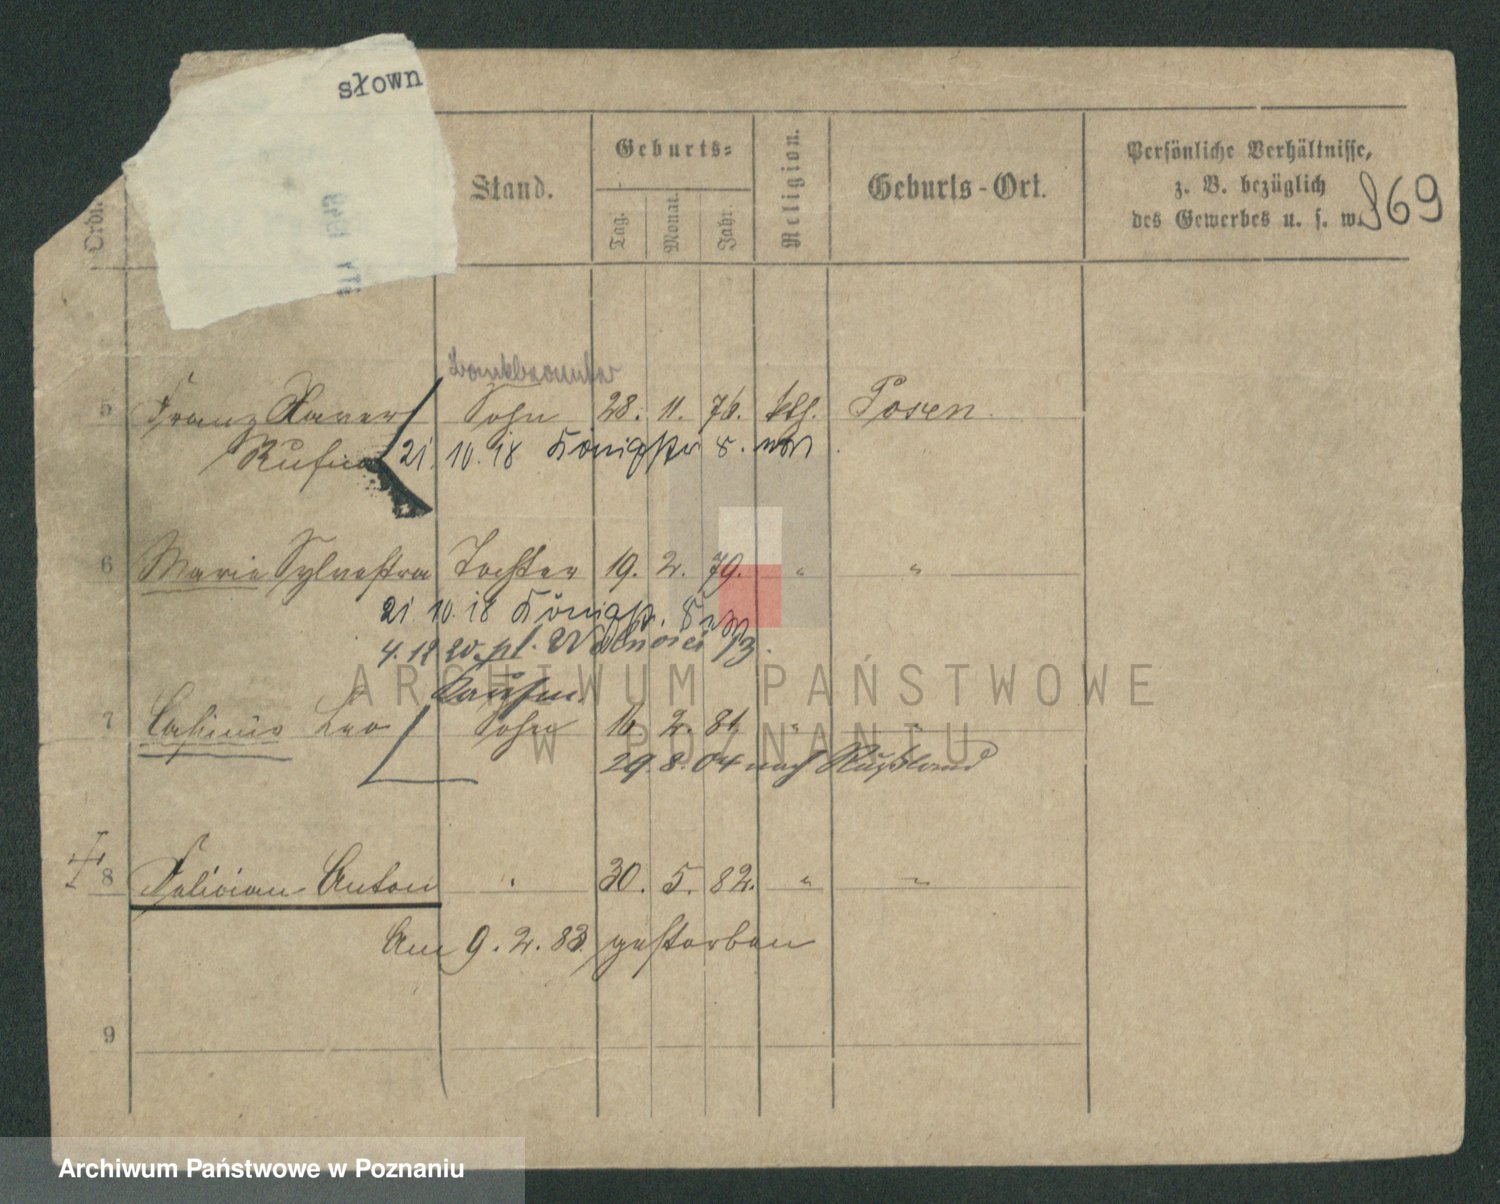 słown
Ordn.
Stand.
Geburts-
Tag.
Monat.
Jahr.
Religion.
Geburts-Ort.
Persönliche Verhältnisse,
z. B. bezüglich
des Gewerbes u. s. w.
869
Bankbeamter
5 Franz Xaver Sohn 28. 11. 76. kth. Posen
Rufin 21. 10. 18 Königstr 8.
6 Marie Sylvestra Tochter 19. 2. 79. " "
21 10. 18 Königstr. 8
4. 12 20. pl. Wolności 13.
Kaufm.
7 Casimir Leo Sohn 16. 2. 81. " "
29. 8. 04 nach Rußland
8 Felician Anton " 30. 5. 82. " "
Am 9. 2. 83 gestorben
9
ARCHIWUM PAŃSTWOWE
W POZNANIU
Archiwum Państwowe w Poznaniu